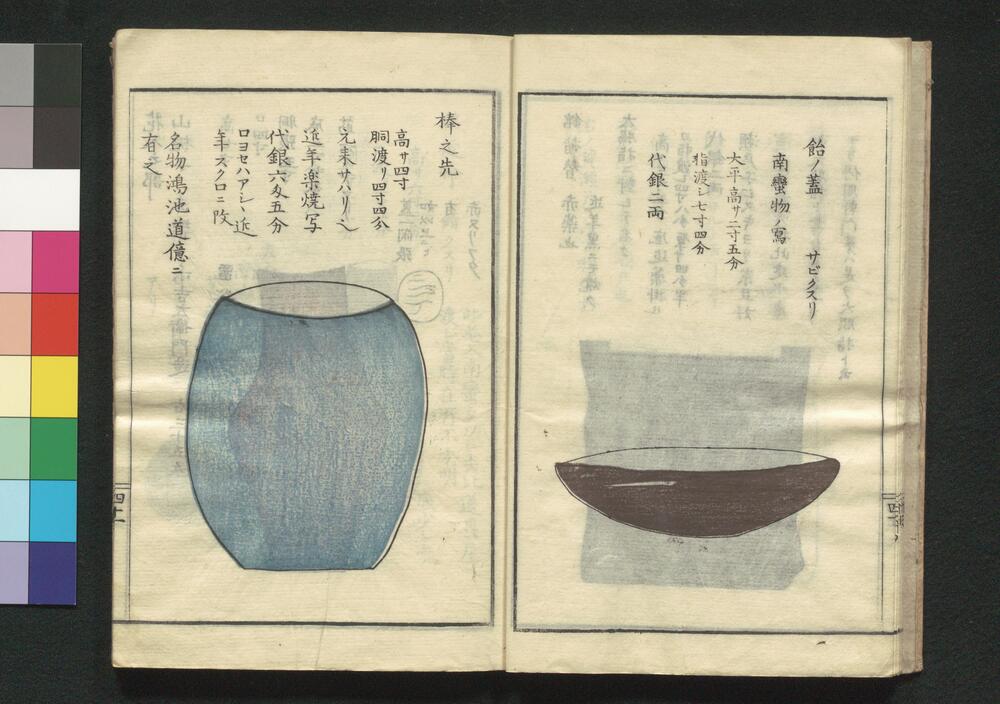 飴ノ蓋　サビクスリ
南蠻物ノ寫
大平 高サ二寸五分
指渡シ七寸四分
代銀二両
棒之先
高サ四寸
胴渡リ四寸四分
元来サハリ也
近年楽焼写
代銀六匁五分
口ヨセハアシヽ近
年スクロニ改
名物鴻池道億ニ
有之
四十一